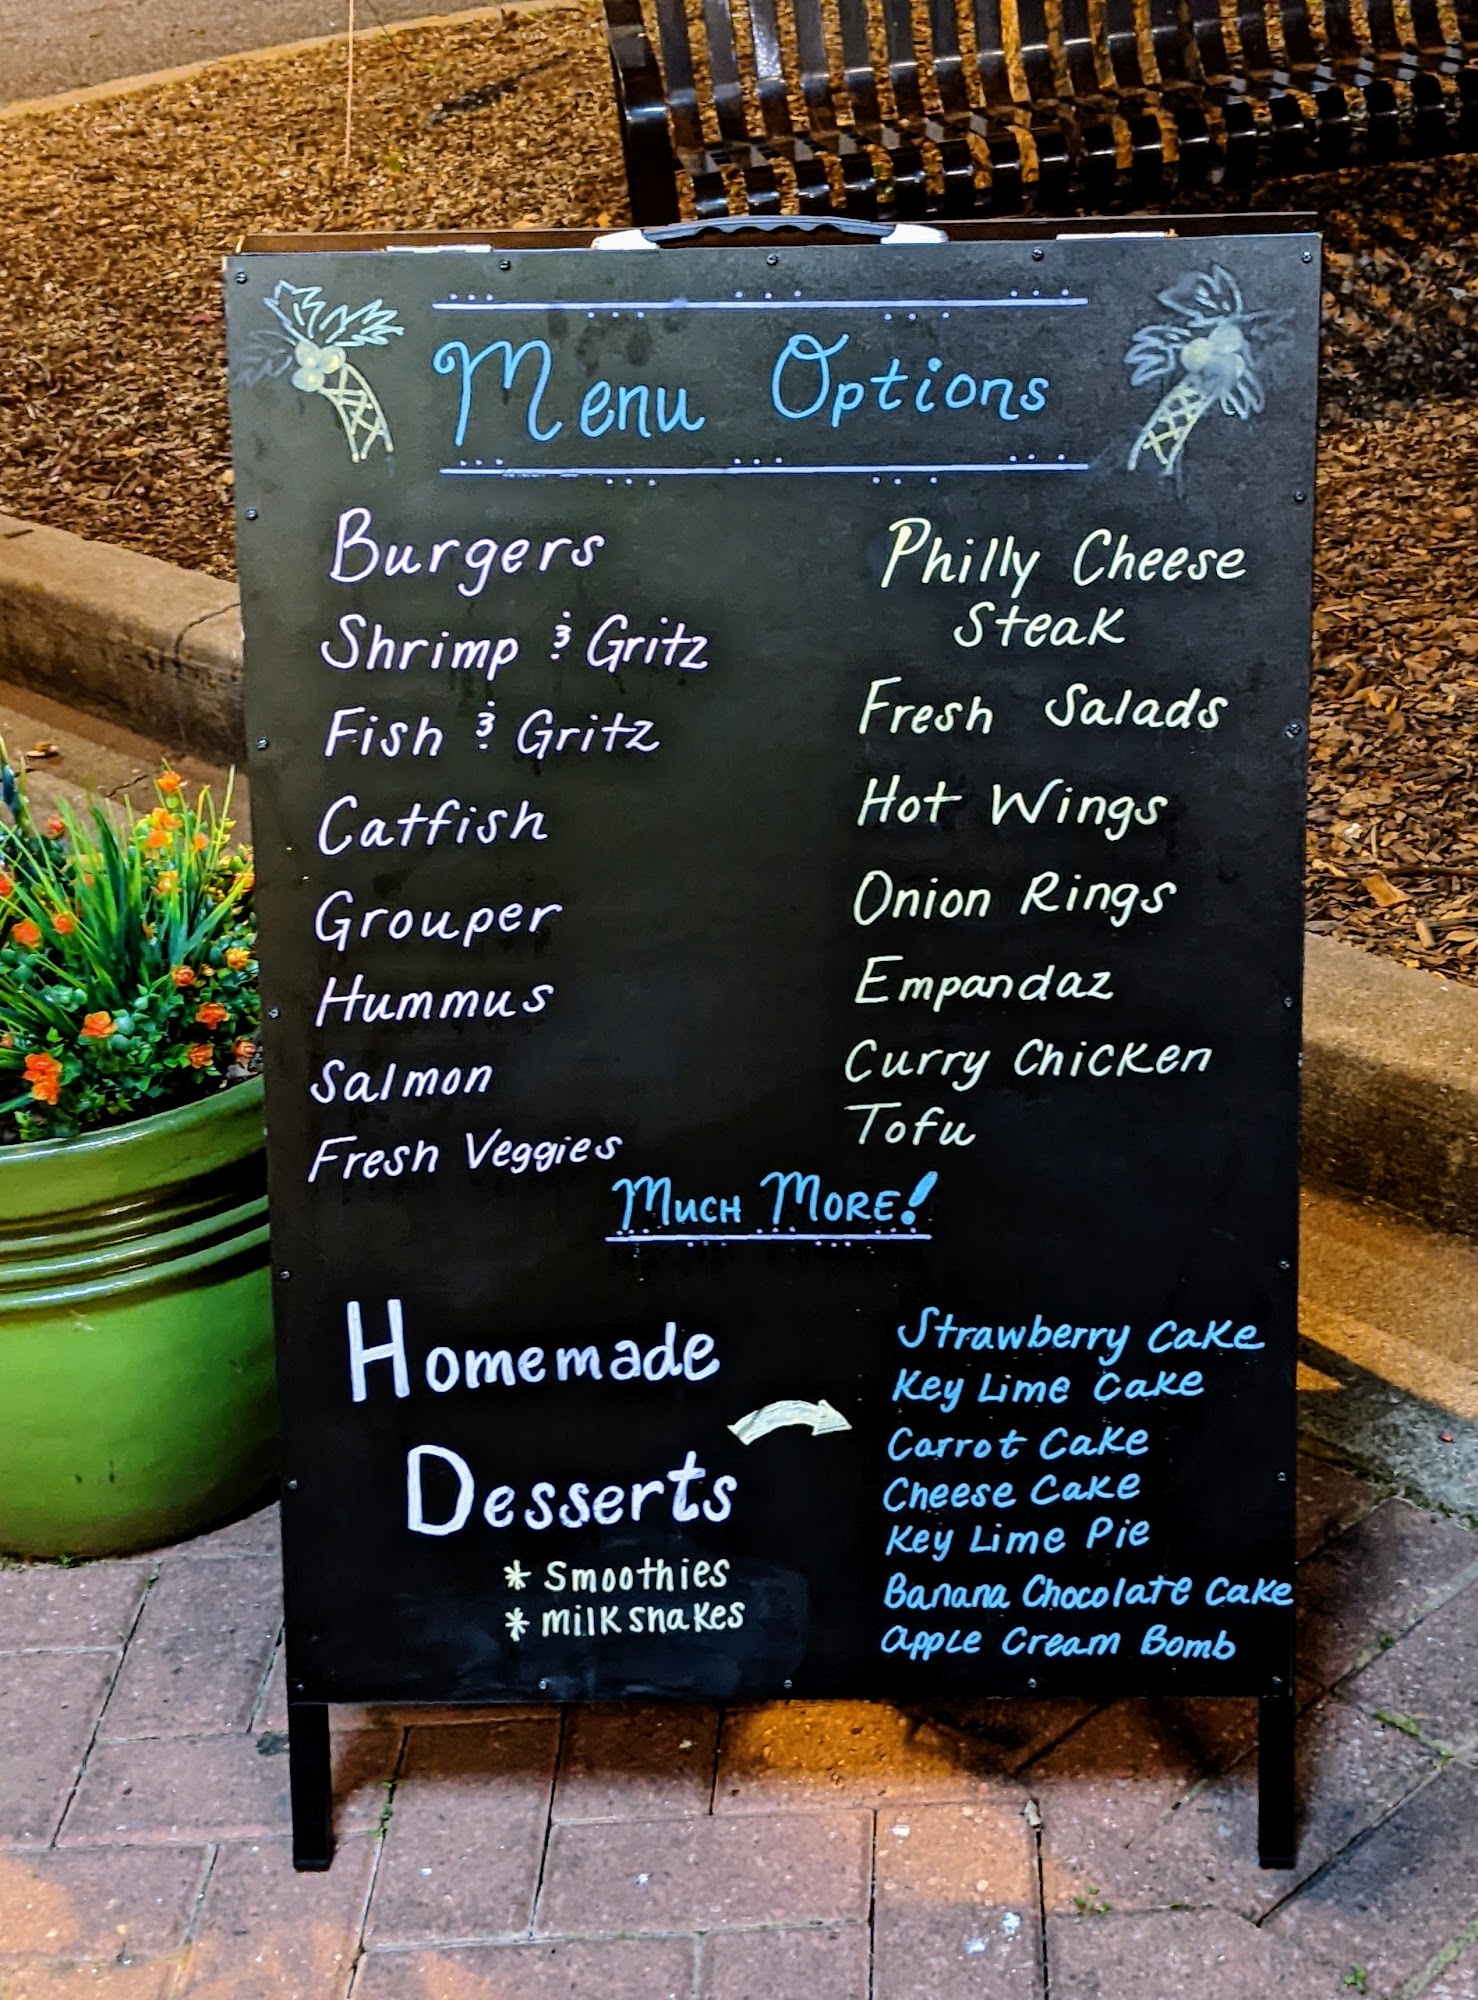 Menu Options
Burgers
Shrimp & Gritz
Fish & Gritz
Catfish
Grouper
Hummus
Salmon
Fresh Veggies
Philly Cheese
Steak
Fresh Salads
Hot Wings
Onion Rings
Empandaz
Curry Chicken
Tofu
Much More!
Homemade
Desserts
* Smoothies
* milkshakes
Strawberry Cake
Key Lime Cake
Carrot Cake
Cheese Cake
Key Lime Pie
Banana Chocolate Cake
apple Cream Bomb